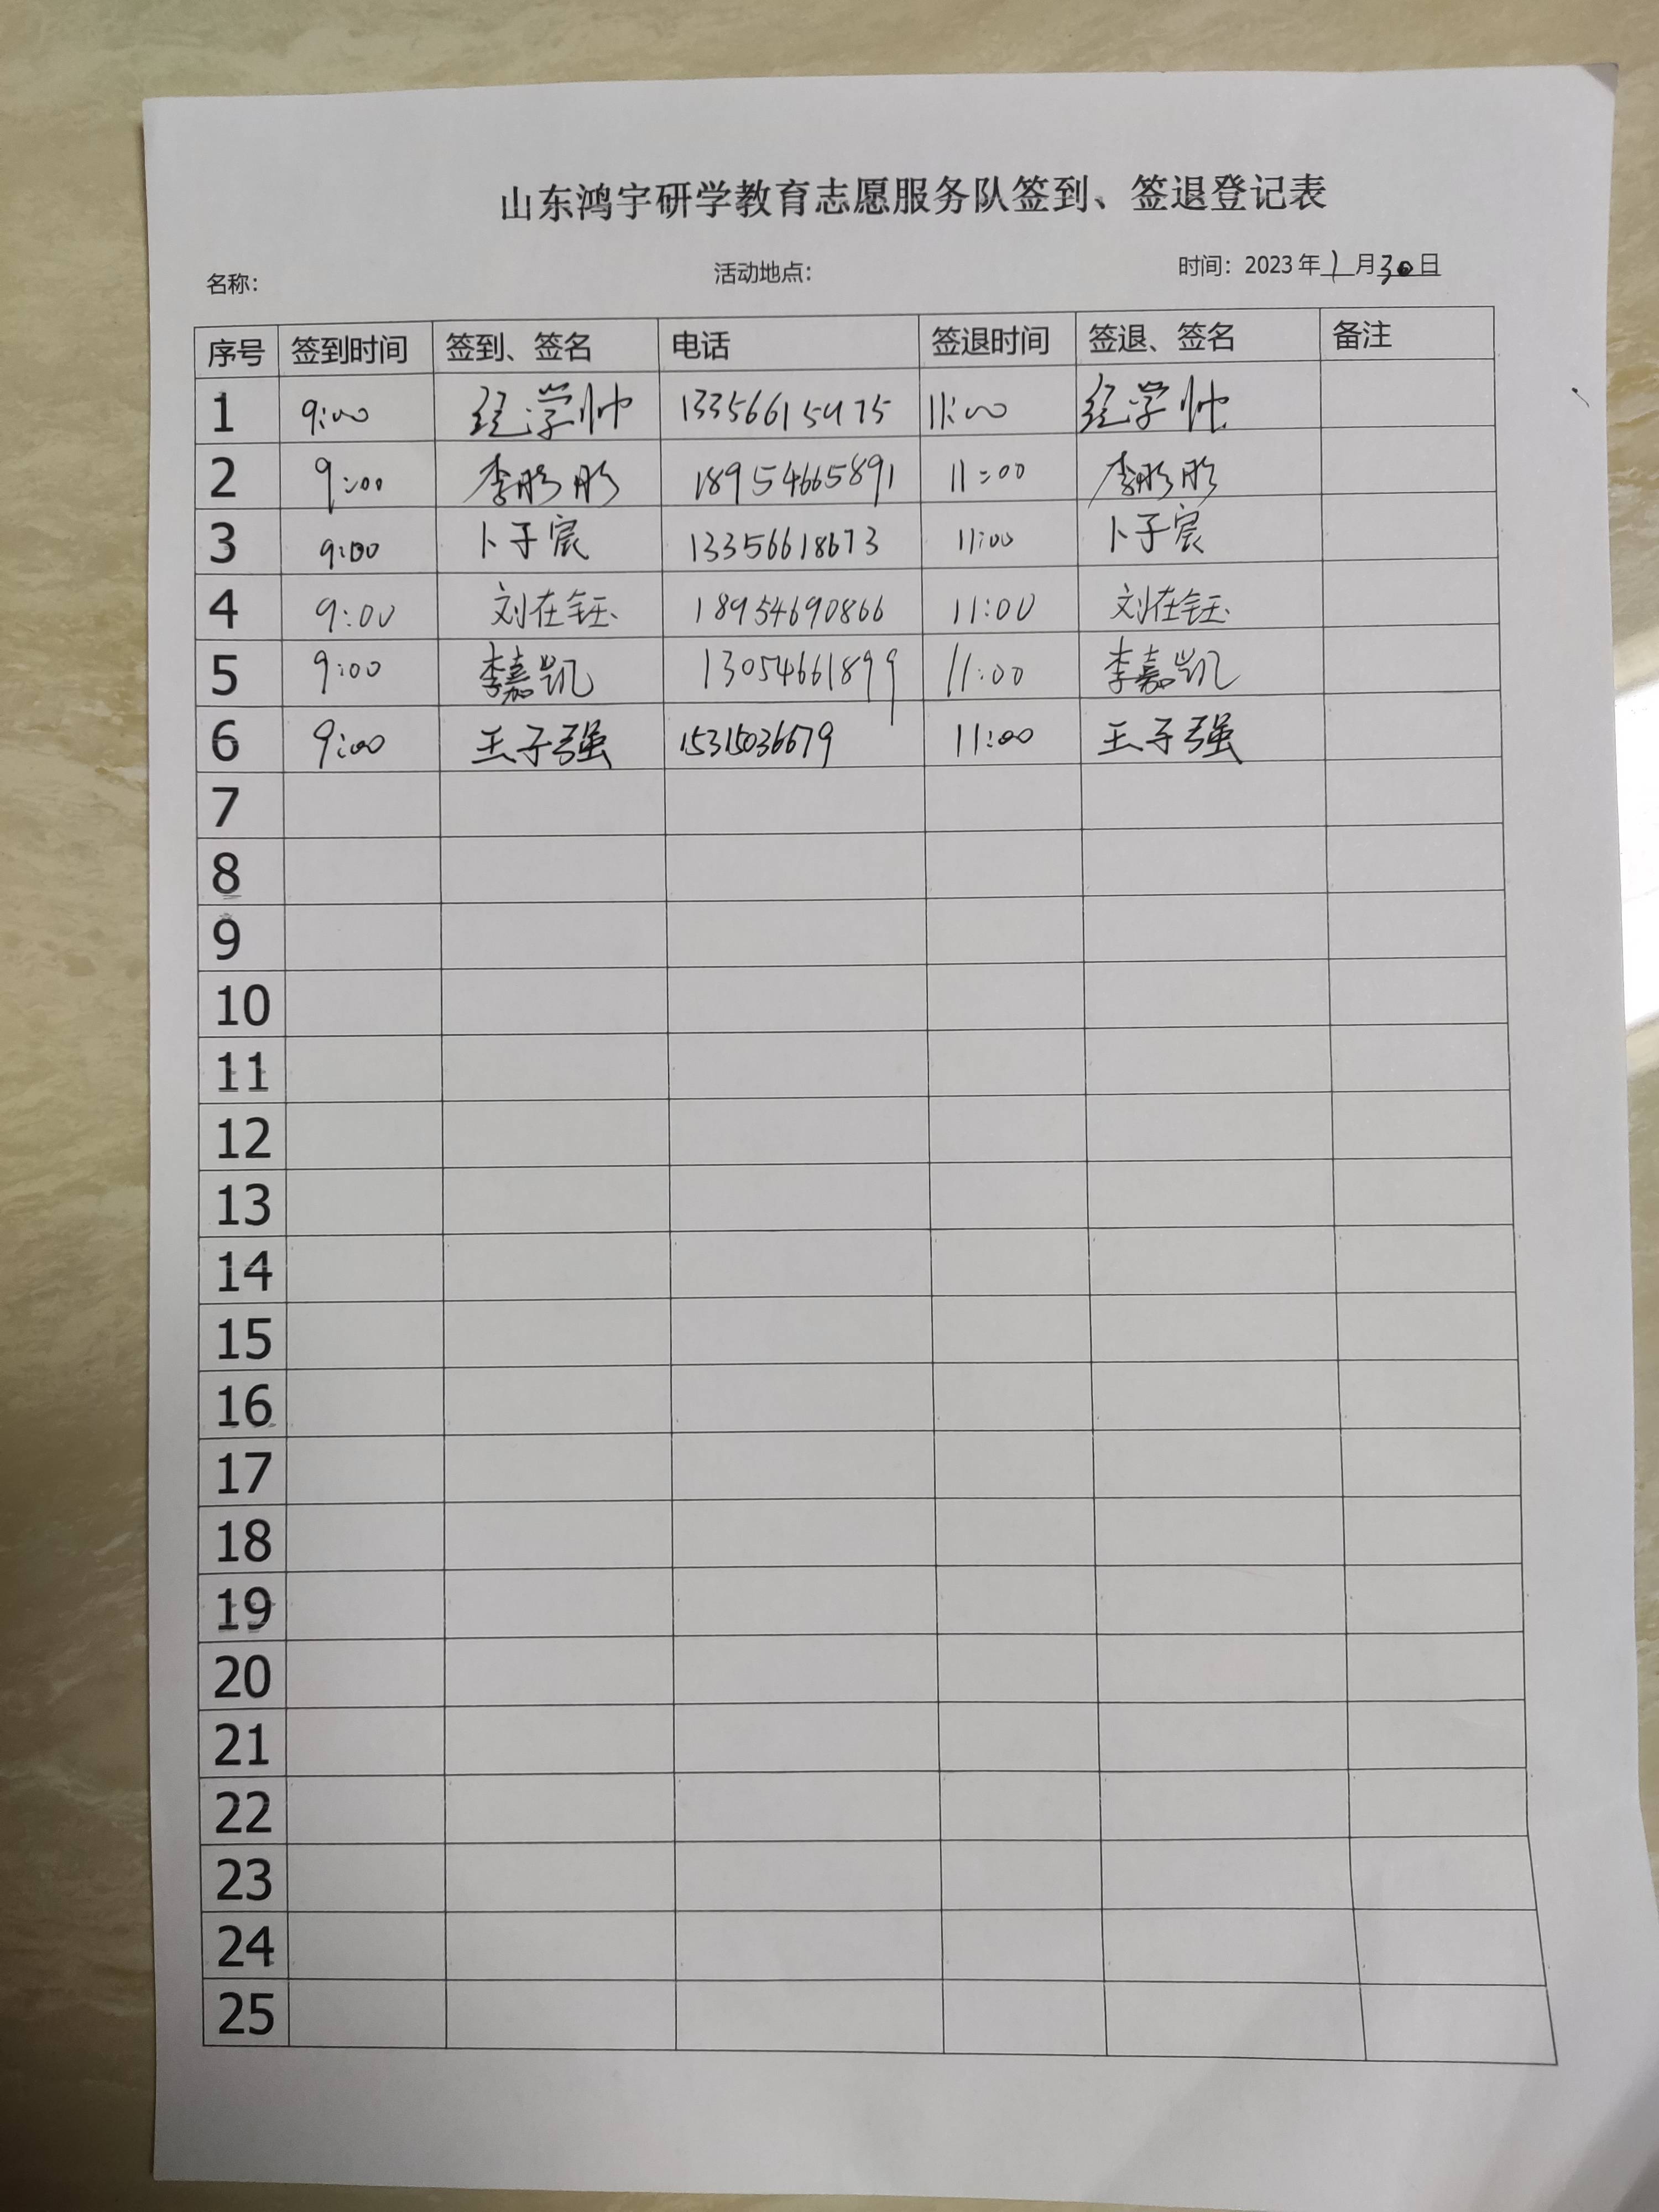 山东鸿宇研学教育志愿服务队签到、签退登记表
名称: 活动地点: 时间: 2023年1月30日
序号 签到时间 签到、签名 电话 签退时间 签退、签名 备注
1 9:00 经学帅 13356615475 11:00 经学帅
2 9:00 李彤彤 18954665891 11:00 李彤彤
3 9:00 卜子宸 13356618673 11:00 卜子宸
4 9:00 刘在钰 18954690866 11:00 刘在钰
5 9:00 李嘉凯 13054661899 11:00 李嘉凯
6 9:00 王子强 15315036679 11:00 王子强
7
8
9
10
11
12
13
14
15
16
17
18
19
20
21
22
23
24
25